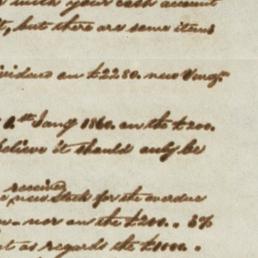 with your cash account
t, but there are some items
dividend on £2230. new Virga
1st Jany 1860. on the £200.
believe it should only be
received
new Stock for the overdue
nor on the £200.. 5%
t as regards the £1000.